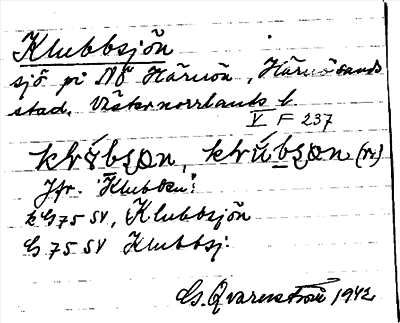 Klubbsjön
sjö på NÖ Härnön, Härnösands
stad, Västernorrlands l.
V F 237
Jfr. "Klubben"
kG 75 SV, Klubbsjön
G 75 SV Klubbsj.
G. Qvarnström 1942